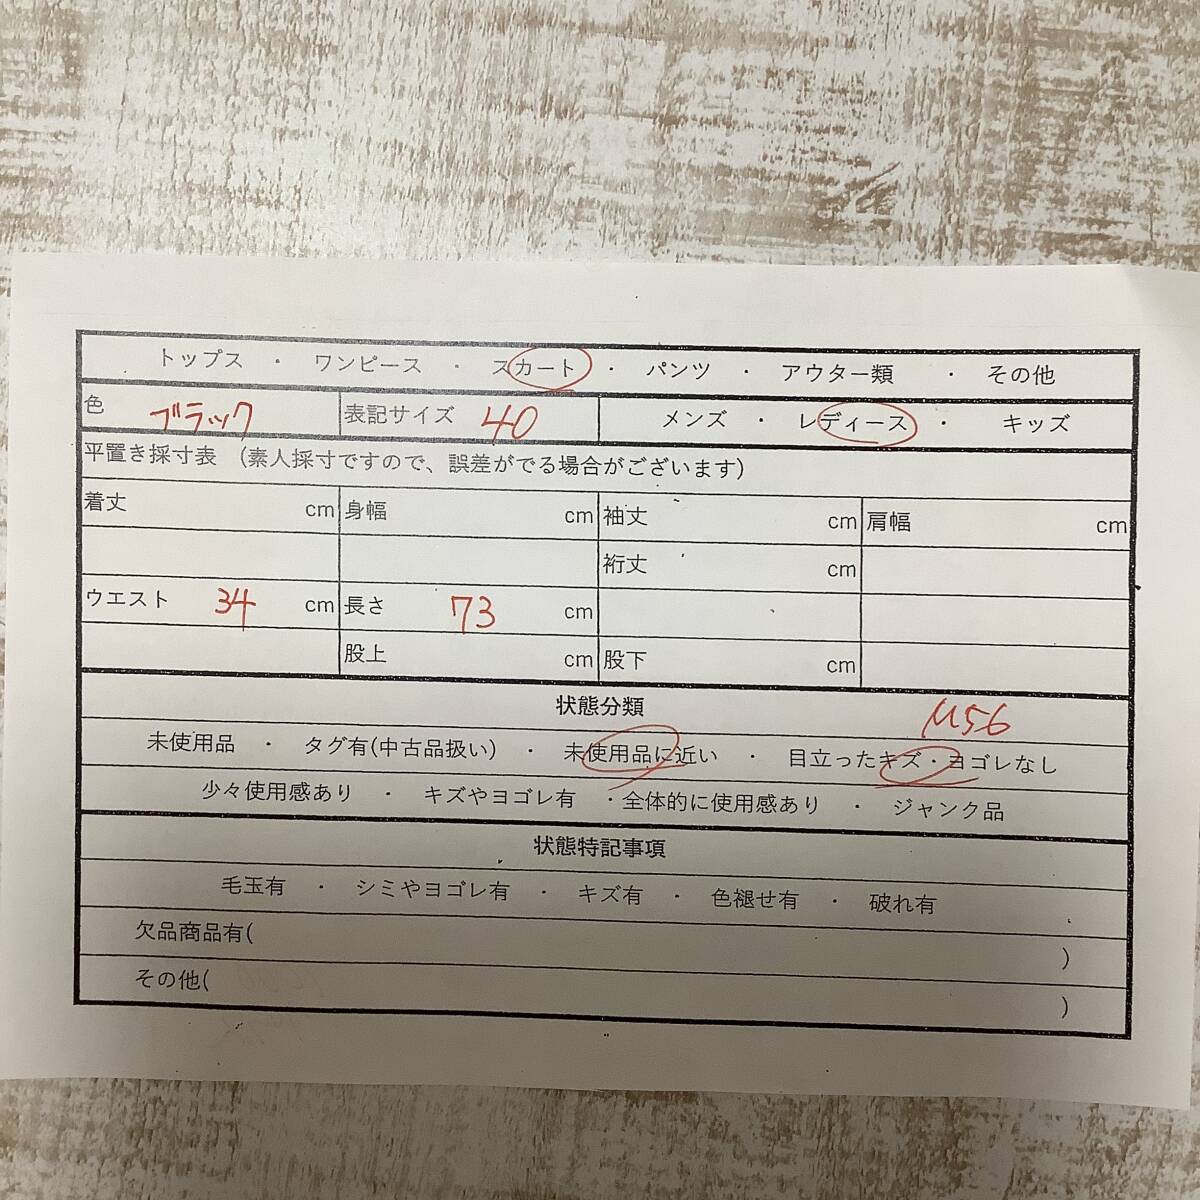 トップス ・ ワンピース ・ スカート ・ パンツ ・ アウター類 ・ その他
色 ブラック 表記サイズ 40 メンズ ・ レディース ・ キッズ
平置き採寸表 (素人採寸ですので、誤差がでる場合がございます)
着丈 cm 身幅 cm 袖丈 cm 肩幅 cm
裄丈 cm
ウエスト 34 cm 長さ 73 cm
股上 cm 股下 cm
状態分類
未使用品 ・ タグ有(中古品扱い) ・ 未使用品に近い ・ 目立ったキズ・ヨゴレなし
少々使用感あり ・ キズやヨゴレ有 ・全体的に使用感あり ・ ジャンク品
状態特記事項
毛玉有 ・ シミやヨゴレ有 ・ キズ有 ・ 色褪せ有 ・ 破れ有
欠品商品有( )
その他( )